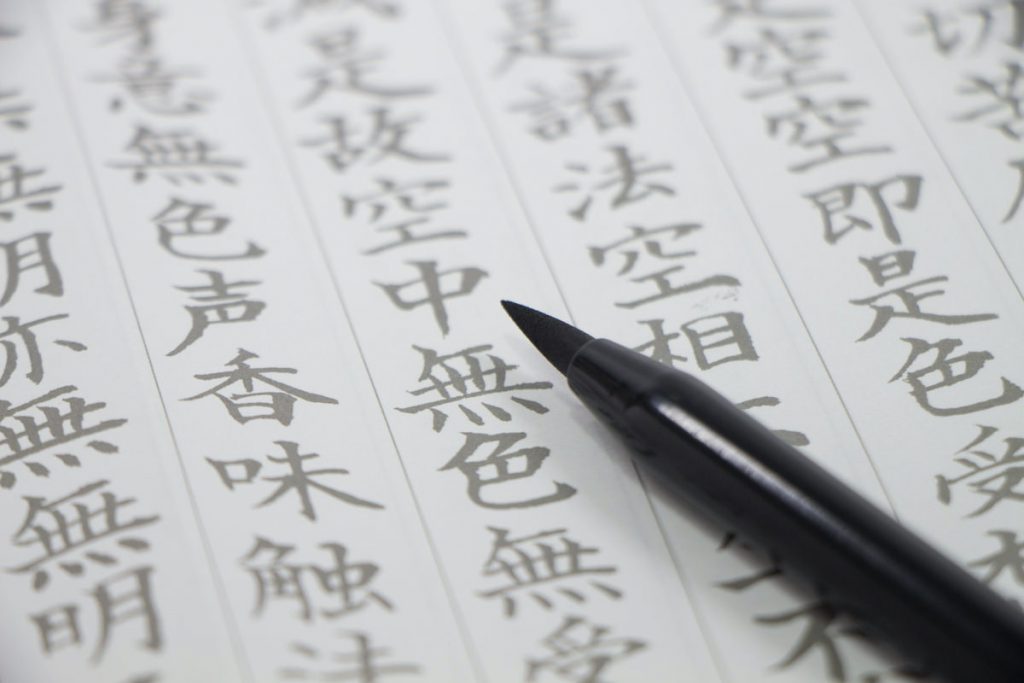 切苦
是空空即是色受
是諸法空相不
減是故空中無色無受
身意無色声香味触法
無明亦無無明